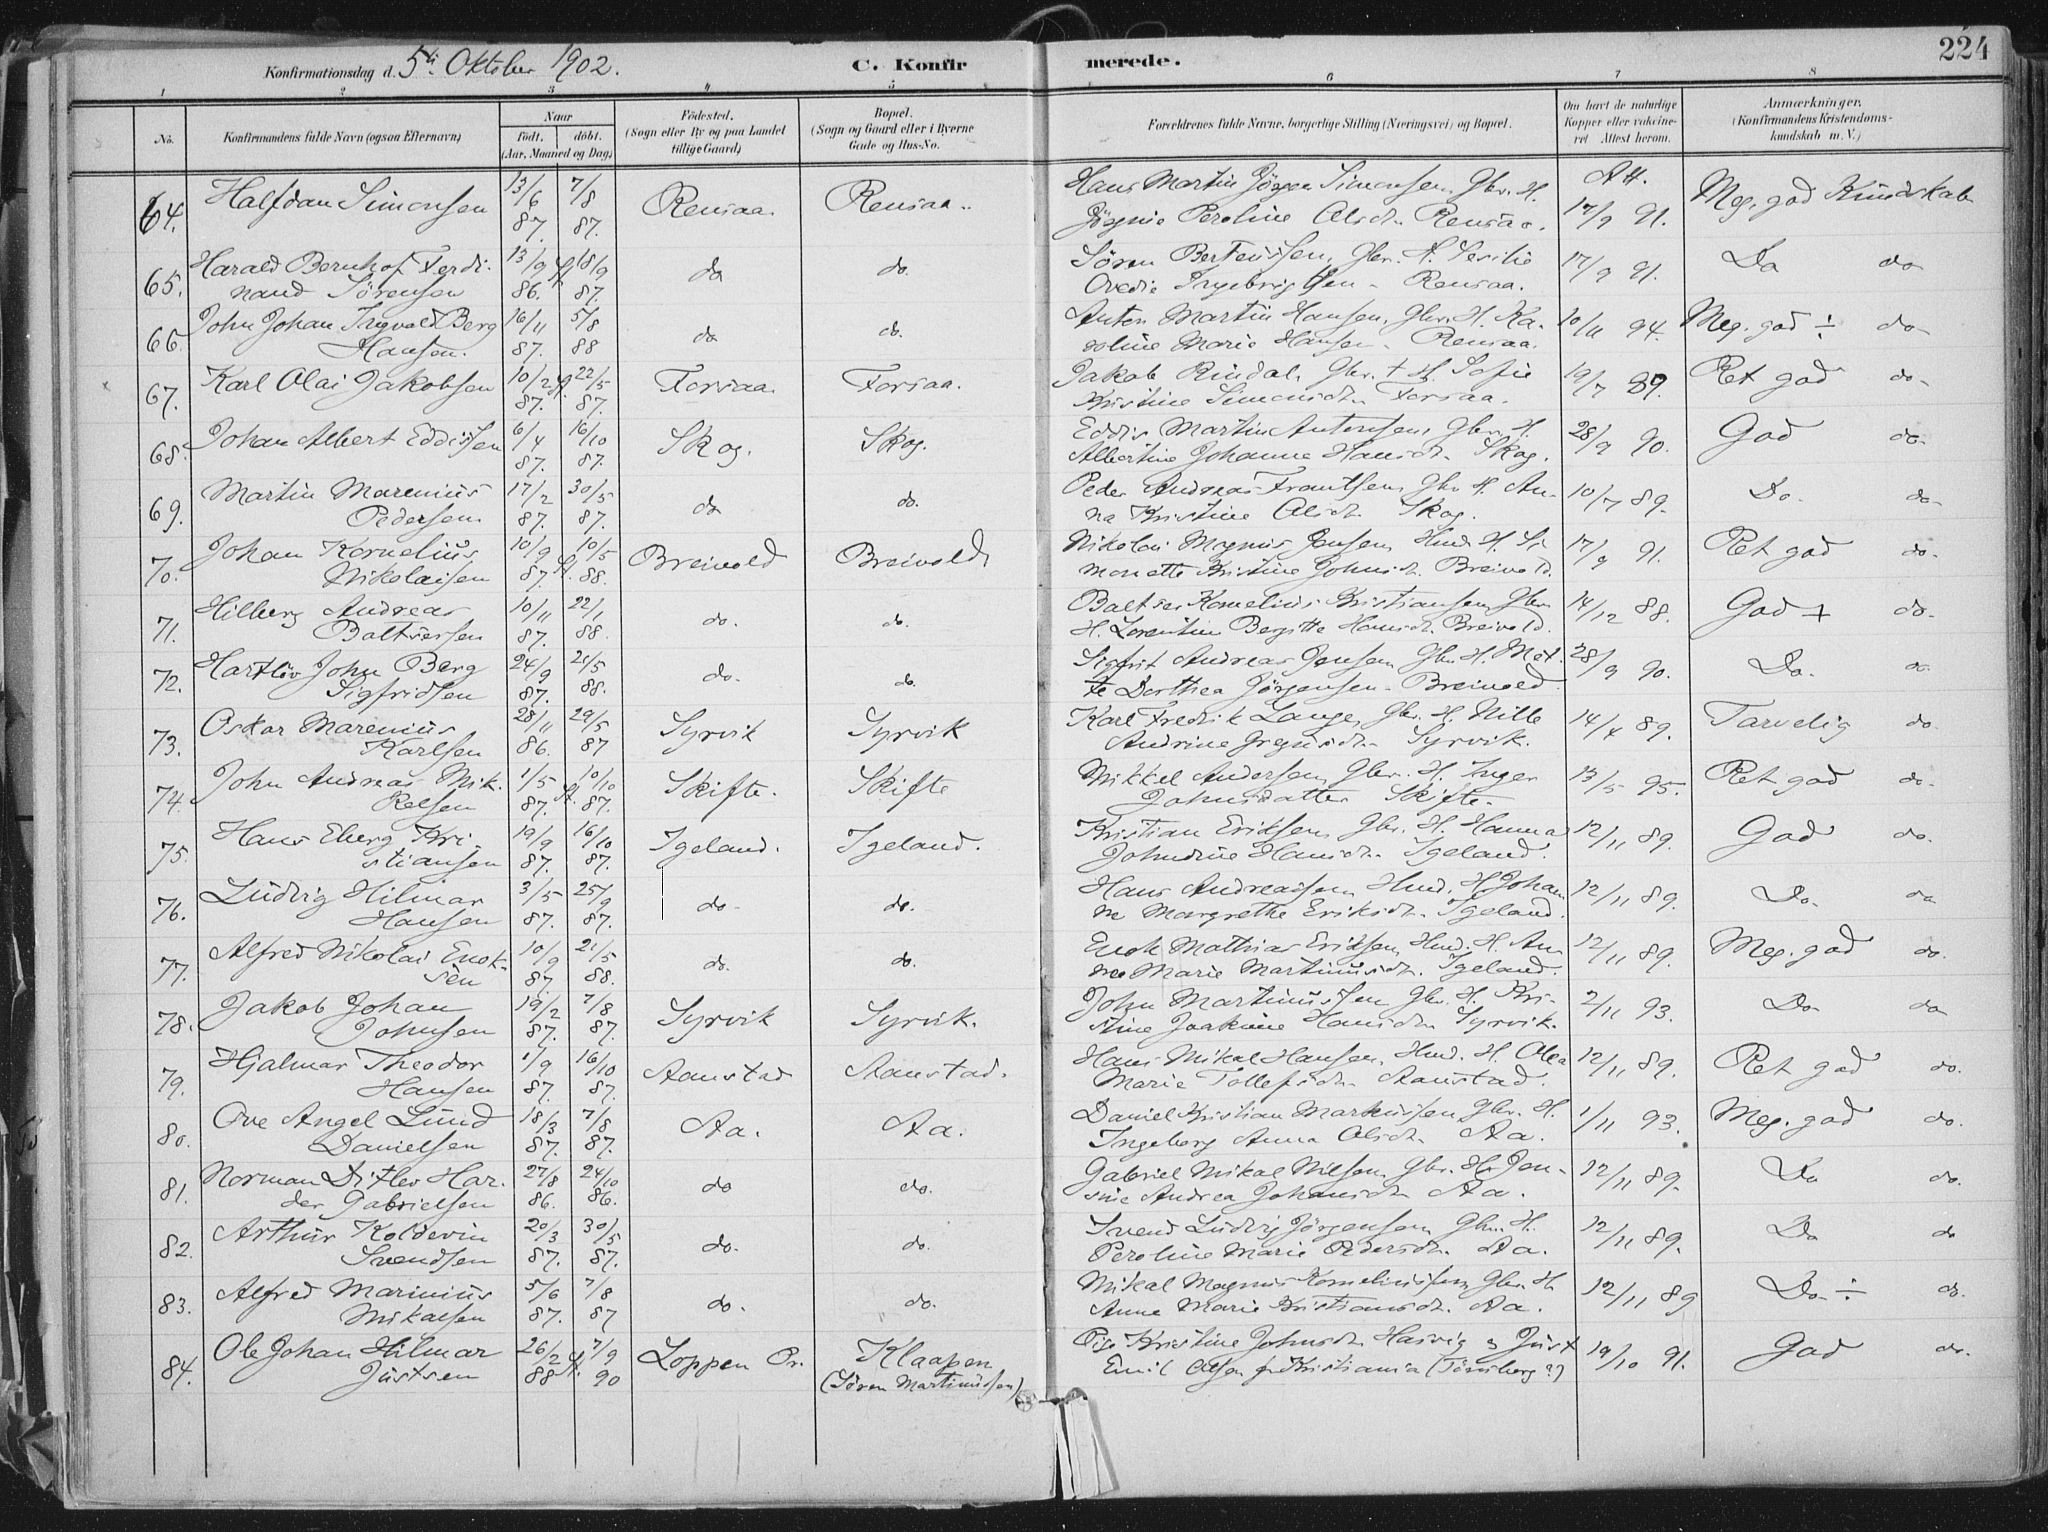 224
Konfirmationsdag d. 5te Oktober 1902.
C. Konfirmerede.
1 2 3 4 5 6 7 8
No.
Konfirmandens fulde Navn (ogsaa Efternavn)
Naar
født. døbt.
(Aar, Maaned og Dag)
Fødested.
(Sogn eller By og paa Landet
tillige Gaard)
Bopæl.
(Sogn og Gaard eller i Byerne
Gade og Hus-No.
Forældrenes fulde Navne, borgerlige Stilling (Næringsvei) og Bopæl.
Om havt de naturlige
Kopper eller vakcine-
ret Attest herom.
Anmærkninger.
(Konfirmandens Kristendoms-
kundskab m. V.)
64. Halfdan Simonsen 13/6 87. 7/8 87. Rensaa. Rensaa. Hans Martin Jörgen Simonsen, Gbr. H. Peroline Olsdt. Rensaa. Att. 17/9 91. Meg. god Kundskab
65. Harald Bernhof Ferdi-
nand Sörensen 13/9 86. 18/9 87. do do. Sören Berteussen, Gbr. H. Sesilie
Ovedie Ingebrigtsen - Rensaa. 17/9 91. Do do
66. John Johan Ingvald Berg
Hansen. 16/11 87. 5/8 88 do do. Anton Martin Hansen, Gbr. H. Ka-
roline Marie Hansen - Rensaa. 10/11 94. Meg. god ÷ do
67. Karl Olai Jakobsen 10/2 87. 22/5 87. Forsaa. Forsaa. Jakob Rindal, Gbr. + H. Sofie
Kristine Simonsdt. Forsaa. 19/7 89. Ret god do-
68. Johan Albert Eddissen 6/4 87. 16/10 87. Skog. Skog. Eddis Martin Antonsen, Gbr. H.
Albertine Johanna Hansdt. Skog. 28/9 90. God do-
69. Martin Marenius
Pedersen 17/2 87. 30/5 87. do do. Peder Andreas Frantsen, Gbr. H. An-
na Kristine Olsdt. Skog. 10/7 89. Do. do-
70. Johan Kornelius
Nikolaisen 10/9 87. 10/5 88. Breivold Breivold Nikolai Magnus Jensen, Hmd. H. Si-
monette Kristine Johnsdt. Breivold. 17/9 91. Ret god do-
71. Hilberg Andreas
Baltsersen 10/11 87. 22/1 88. do. do. Baltser Kornelius Kristiansen, Gbr.
H. Lorentine Bergitte Hansdt. Breivold. 14/12 88. God + do-
72. Hartlöv John Berg
Sigfridsen 24/9 87. 21/5 88. do. do. Sigfrit Andreas Jensen, Gbr. H. Met-
te Dorthea Jörgensen - Breivold. 28/9 90. Do. do
73. Oskar Marenius
Karlsen 28/11 86. 29/5 87 Syrvik Syrvik Karl Fredrik Lange, Gbr. H. Nille
Andrine Gregusdt. Syrvik. 14/4 89. Tarvelig do
74. John Andreas Mik-
kelsen 1/5 87. 10/10 87. Skifte. Skifte Mikkel Andersen, Gbr. H. Inger
Johnsdatter Skifte. 13/5 95. Ret god do-
75. Hans Eberg Kri-
stiansen 19/9 87. 16/10 87. Igeland. Igeland. Kristian Eriksen, Gbr. H. Hanna
Johndine Hansdt. Igeland. 12/11 89. God do.
76. Ludvig Hilmar
Hansen 3/5 87. 25/9 87. do- do. Hans Andreassen, Hmd. H. Johan-
ne Margrethe Eriksdt. Igeland. 12/11 89. Do. do
77. Alfred Nikolai Enok-
sen 10/9 87. 21/5 88. do. do. Enok Mathias Eriksen, Hmd. H. An-
ne Marie Martinusdt. Igeland. 12/11 89. Meg. god do.
78. Jakob Johan
Johnsen 19/2 87. 7/8 87. Syrvik Syrvik. John Martinussen, Gbr. H. Kri-
stine Joakime Hansdt. Syrvik. 2/11 93. Do do
79. Hjalmar Theodor
Hansen 1/9 87. 16/10 87. Aanstad Aanstad. Hans Mikal Hansen, Hmd. H. Olea
Marie Tollefsdt. Aanstad. 12/11 89. Ret god do.
80. Ove Angel Lund
Danielsen 18/3 87. 7/8 87. Aa. Aa. Daniel Kristian Markussen Gbr. H.
Ingeborg Anna Olsdt. Aa. 1/11 93. Meg. god do.
81. Norman Ditlev Har-
der Gabrielsen 27/8 86. 24/10 86. do do. Gabriel Mikal Nilsen, Gbr. H. Jen-
sine Andrea Johansdt. Aa. 12/11 89. Do do.
82. Arthur Koldevin
Svendsen 20/3 87. 30/5 87. do. do. Svend Ludvig Jörgensen, Gbr. H.
Peroline Marie Pedersdt. Aa. 12/11 89. Do do
83. Alfred Marinius
Mikalsen 5/6 87. 7/8 87 do. do. Mikal Magnus Korneliussen, Gbr. H.
Anne Marie Kristiansdt. Aa. 12/11 89 Do ÷ do.
84. Ole Johan Hilmar
Justsen 26/2 88 7/9 90 Loppen Pr. Klaapen
(Sören Martinussen) Pige Kristine Johnsdt. Hasvig & Just
Emil Olsen fr Kristiania (Tönsberg?) 19/10 91. God do.